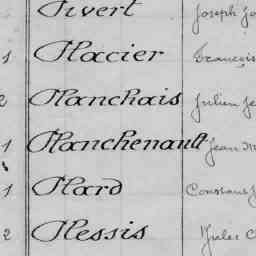 Pivert Joseph
1 Placier François
2 Planchais Julien
1 Planchenault Jean
1 Plard Constant
2 Plessis Jules